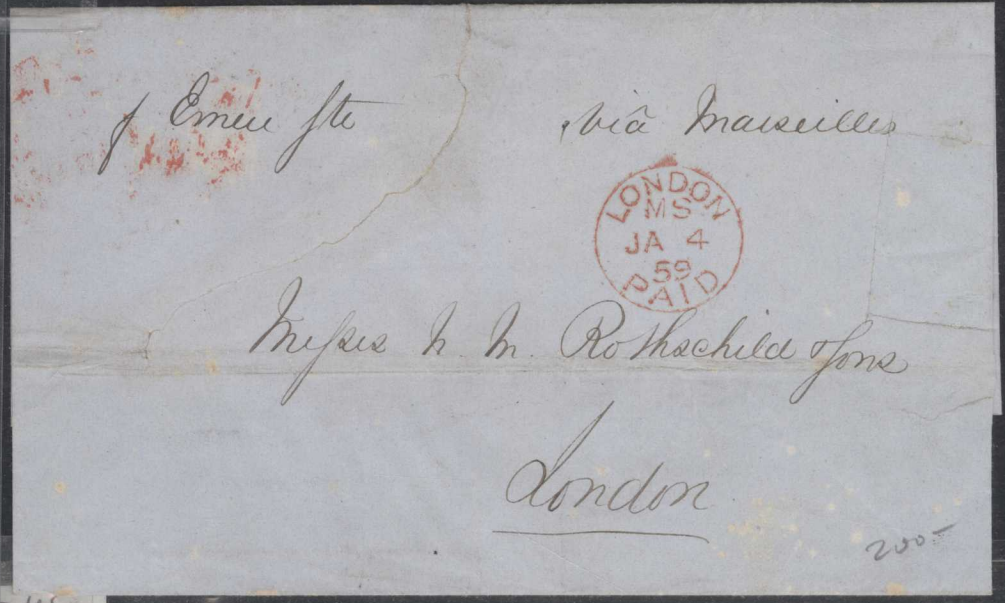 p Emeu Str
via Marseilles
LONDON
MS
JA 4
59
PAID
Messrs N. M. Rothschild & Sons
London
200-